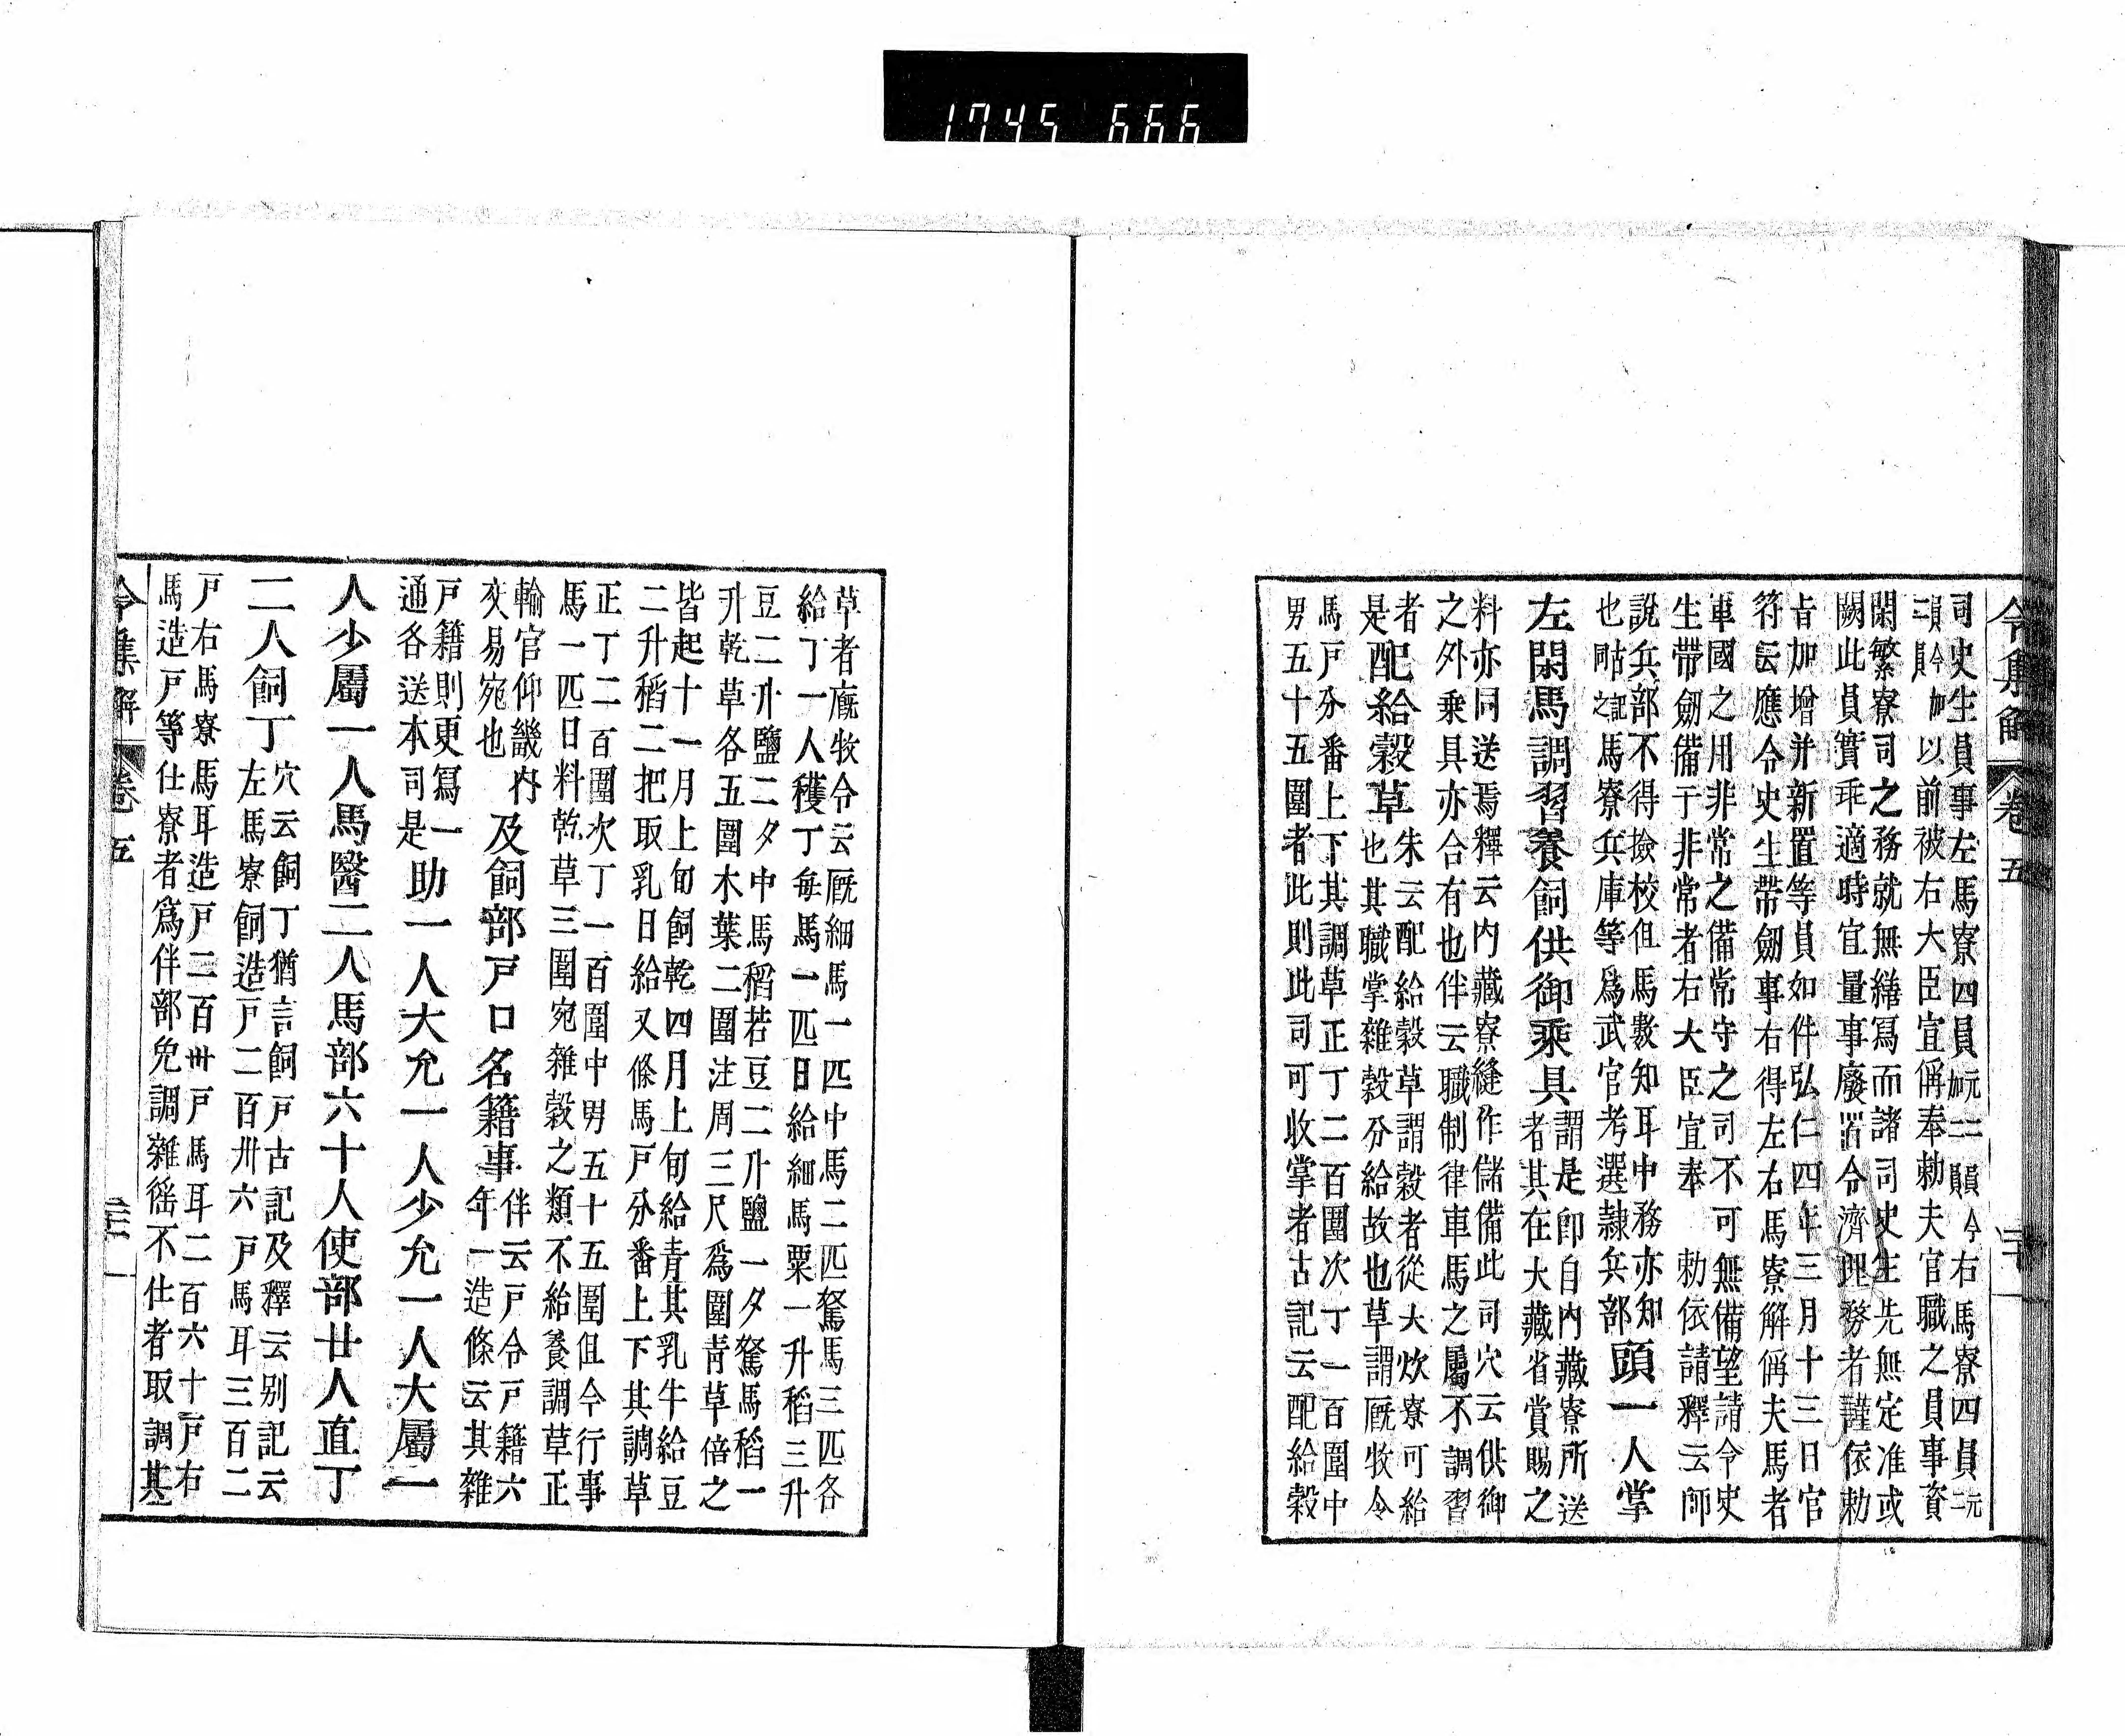 1745 666
令集解 卷五
司史生員事左馬寮四員元二員今加二員右馬寮四員元
二員今加二員以前被右大臣宣偁奉勅夫官職之員事資
閑繁寮司之務就無繕寫而諸司史生先無定准或
闕此員實乖適時宜量事廢省令濟理務者謹依勅
旨加增并新置等員如件弘仁四年三月十三日官
符云應令史生帶劔事右得左右馬寮解偁夫馬者
軍國之用非常之備常守之司不可無備望請令史
生帶劔備于非常者右大臣宣奉 勅依請釋云師
說兵部不得撿校但馬數知耳中務亦知
也古記同之馬寮兵庫等爲武官考選隷兵部
頭一人掌
左閑馬調習養飼供御乘具
謂是卽自內藏寮所送
者其在大藏省賞賜之
料亦同送焉釋云內藏寮縫作儲備此司穴云供御
之外乘具亦合有也伴云職制律車馬之屬不調習
者
是
配給穀草
朱云配給穀草謂穀者從大炊寮可給
也其職掌雜穀分給故也草謂厩牧令
馬戸分番上下其調草正丁二百圍次丁一百圍中
男五十五圍者此則此司可收掌者古記云配給穀
草者厩牧令云厩細馬一匹中馬二匹駑馬三匹各
給丁一人穫丁每馬一匹日給細馬粟一升稻三升
豆二升鹽二夕中馬稻若豆二升鹽一夕駑馬稻一
升乾草各五圍木葉二圍注周三尺爲圍靑草倍之
皆起十一月上旬飼乾四月上旬給靑其乳牛給豆
二升稻二把取乳日給又條馬戸分番上下其調草
正丁二百圍次丁一百圍中男五十五圍但今行事
馬一匹日料乾草三圍宛雜穀之類不給養調草正
輸官仰畿內
交易宛也
及飼部戸口名籍事
伴云戸令戸籍六
年一造條云其雜
戸籍則更寫一
通各送本司是
助一人大允一人少允一人大屬一
人少屬一人馬醫二人馬部六十人使部廿人直丁
二人飼丁
穴云飼丁猶言飼戸古記及釋云別記云
左馬寮飼造戸二百卅六戸馬耳三百二
戸右馬寮馬耳造戸二百卅戸馬耳二百六十戸右
馬造戸等仕寮者爲伴部免調雜徭不仕者取調其
令集解 卷五